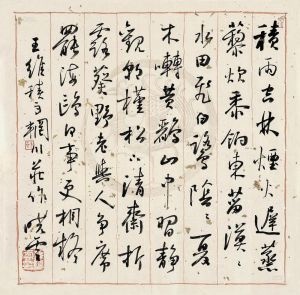 積雨空林煙火遲蒸
藜炊黍餉東菑漠々
水田飛白鷺陰々夏
木囀黄鸝山中習靜
觀朝槿松下清齋折
露葵野老與人爭席
罷海鷗何事更相疑
王維積雨輞川莊作 曉雲